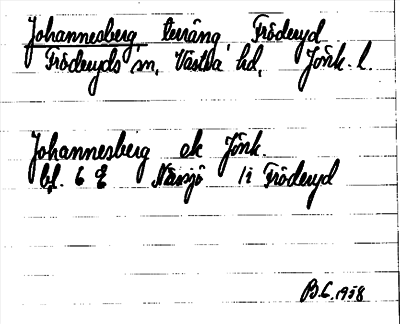 Johannesberg terräng Fröderyd
Fröderyds sn, Västra hd, Jönk. l.
Johannesberg ek Jönk.
bl. 6 E Nässjö i Fröderyd
B.L. 1958